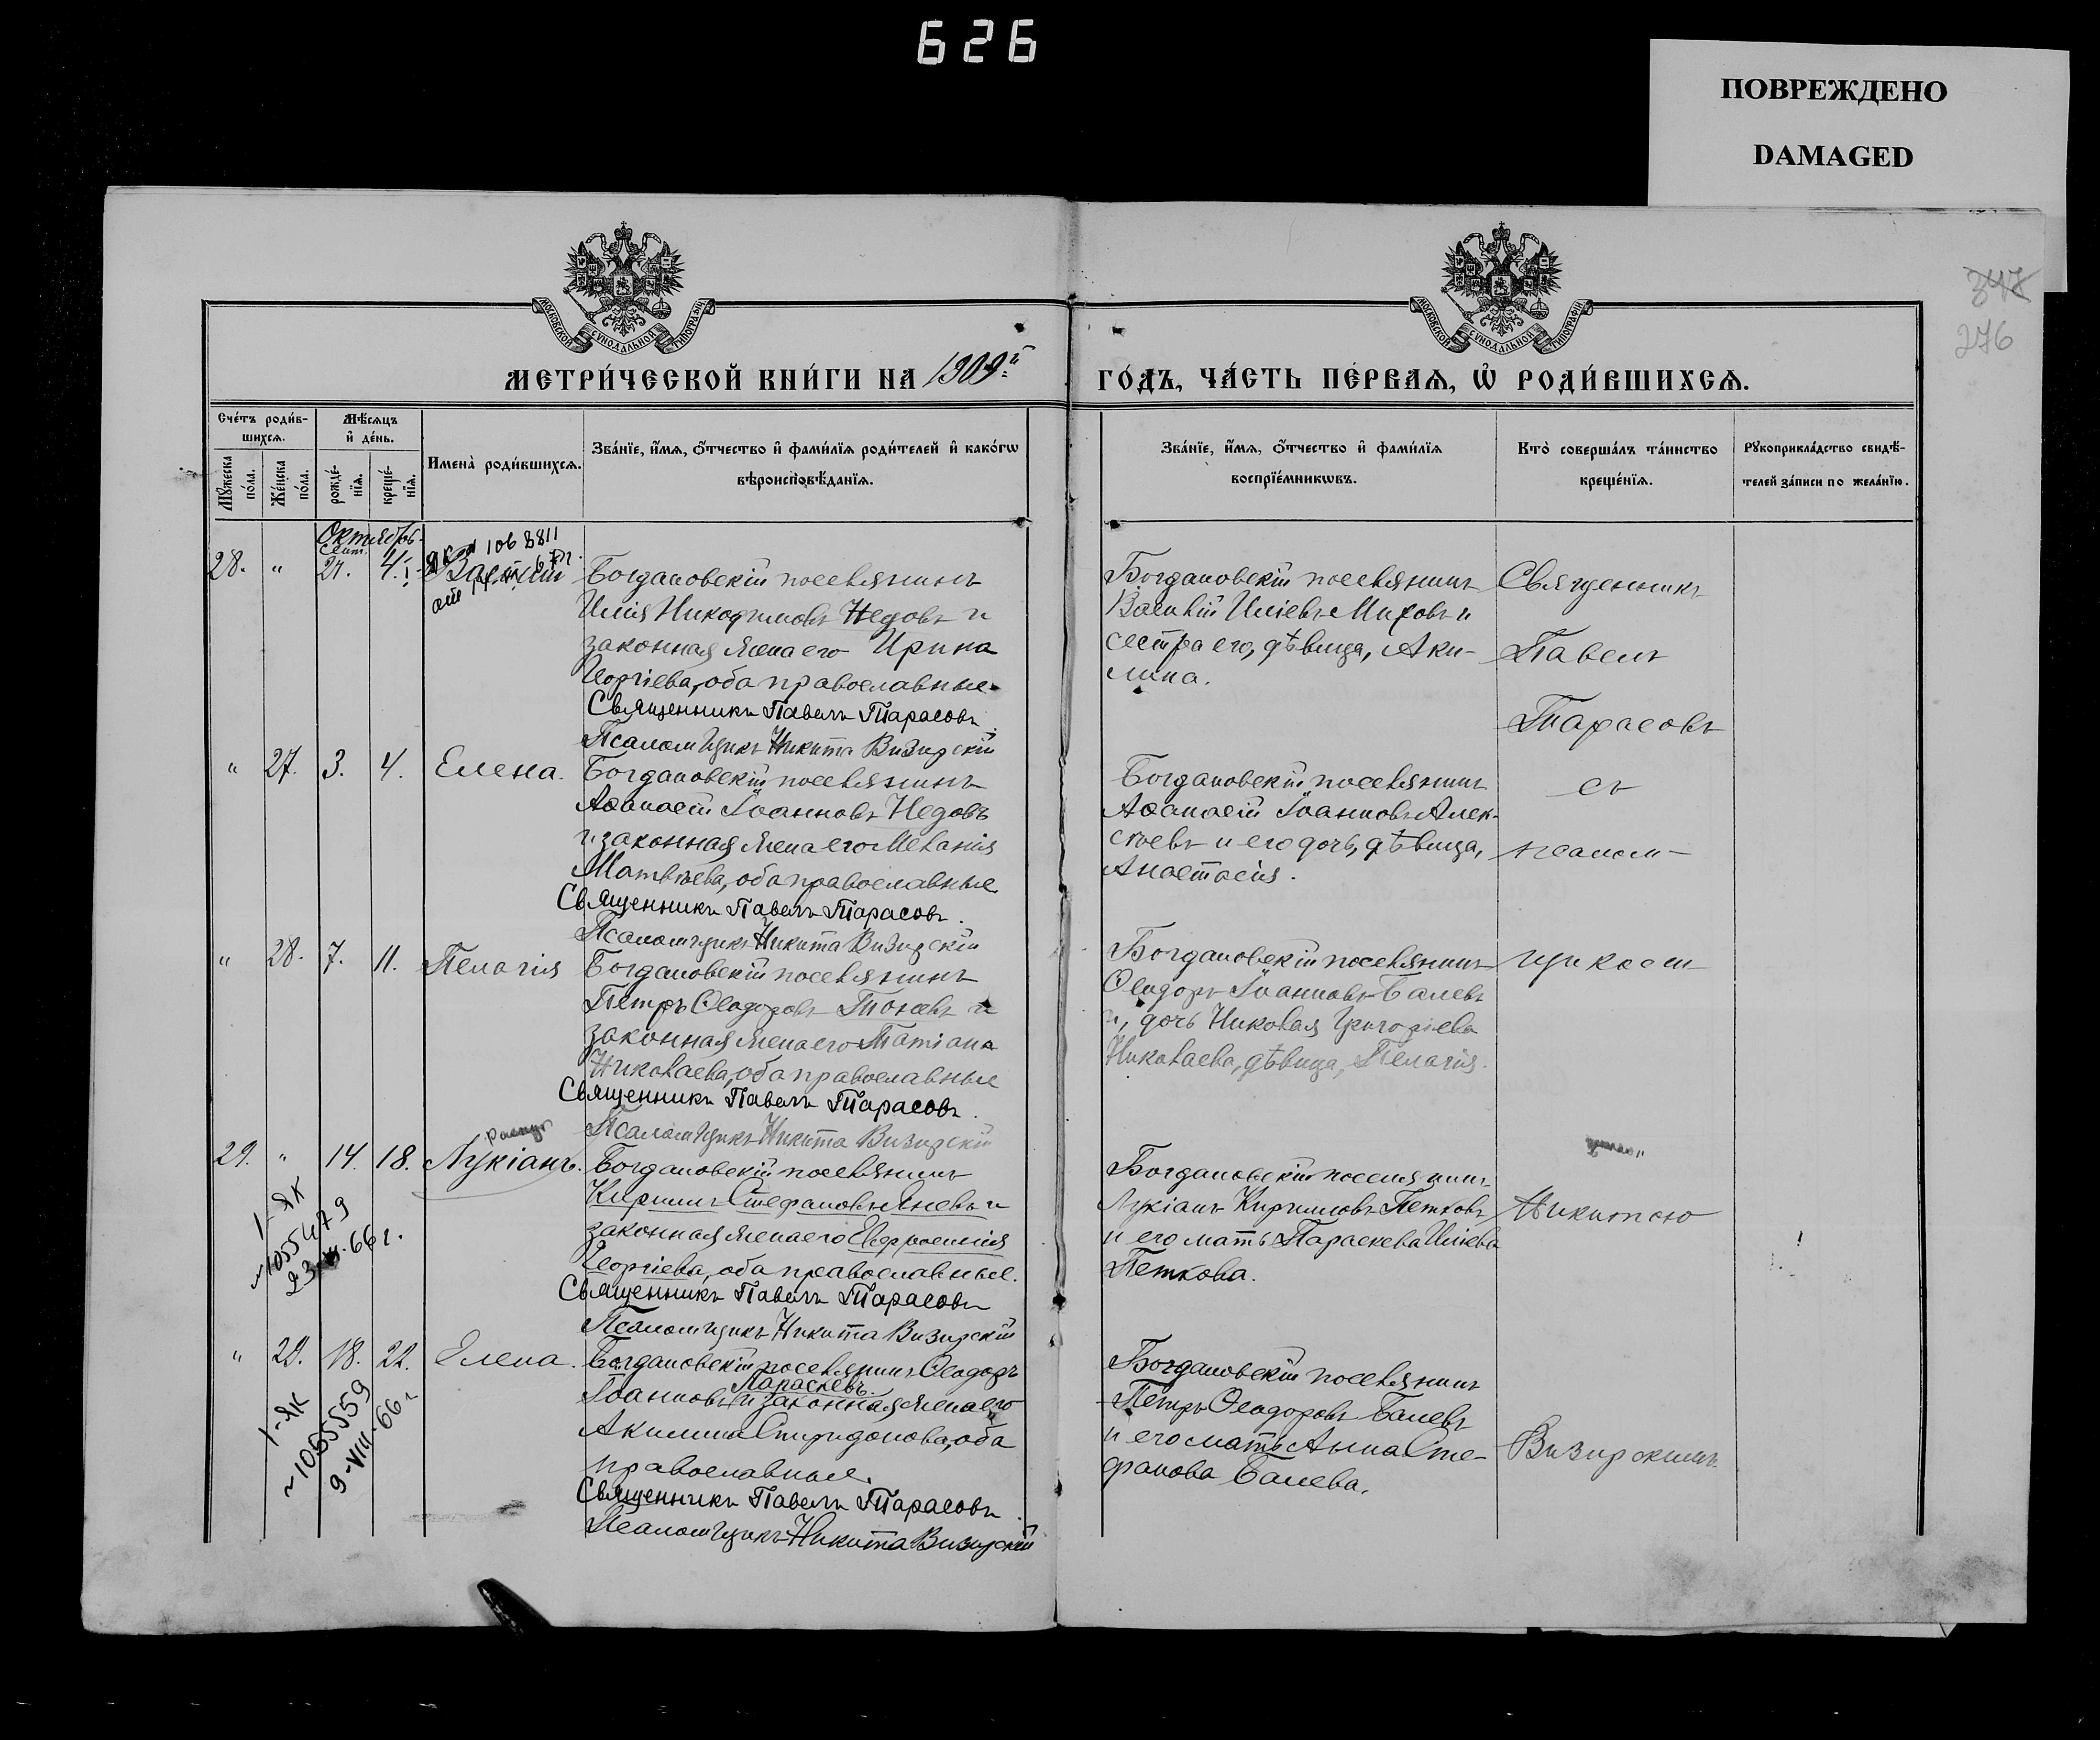 626
ПОВРЕЖДЕНО
DAMAGED
347
276
МОСКОВСКОЙ СѴНОДАЛЬНОЙ ТИПОГРАФІИ
МОСКОВСКОЙ СѴНОДАЛЬНОЙ ТИПОГРАФІИ
МЕТРИ́ЧЕСКОЙ КНИ́ГИ НА 1909й
ГО́ДЪ, ЧА́СТЬ ПЕ́РВАѦ, Ѡ҆ РОДИ́ВШИХСѦ.
Сче́тъ роди́в-
шихсѧ.
Мꙋ́жеска по́ла.
Же́нска по́ла.
Мѣ́сѧцъ
и҆ де́нь.
рожде́-
нїѧ.
креще́-
нїѧ.
Имена̀ роди́вшихсѧ.
Зва́нїе, и҆́мѧ, ѻ҆́тчество и҆ фами́лїѧ роди́телей и҆ како́гѡ
вѣроисповѣ́данїѧ.
Зва́нїе, и҆́мѧ, ѻ҆́тчество и҆ фами́лїѧ
воспрїе́мникѡвъ.
Кто̀ соверша́лъ та́инство
креще́нїѧ.
Рꙋкоприкла́дство свидѣ́-
телей за́писи по жела́нїю.
Октябрь
Сент.
28. " 27. 4. Василій
106 8811
Богдановскій поселянинъ
Илія Никодимовъ Недовъ и
законная жена его Ирина
Георгіева, оба православные.
Священникъ Павелъ Тарасовъ
Псаломщикъ Никита Визирскій
Богдановскій поселянинъ
Василій Иліевъ Миховъ и
сестра его, дѣвица, Аки-
лина.
" 27. 3. 4. Елена.
Богдановскій поселянинъ
Аѳанасій Іоанновъ Недовъ
и законная жена его Меланія
Матвѣева, оба православные
Священникъ Павелъ Тарасовъ.
Псаломщикъ Никита Визирскій
Богдановскій поселянинъ
Аѳанасій Іоанновъ Алек-
сѣевъ и его дочь, дѣвица,
Анастасія.
" 28. 7. 11. Пелагія
Богдановскій поселянинъ
Петръ Ѳеодоровъ Тоневъ и
законная жена его Татіана
Николаева, оба православные
Священникъ Павелъ Тарасовъ.
Псаломщикъ Никита Визирскій
Богдановскій поселянинъ
Ѳеодоръ Іоанновъ Балевъ
и, дочь Николая Григоріева
Николаева, дѣвица, Пелагія.
29. " 14. 18. Лукіанъ.
I-ЯК
1055479
66 г.
Богдановскій поселянинъ
Кириллъ Стефановъ Яневъ и
законная жена его Евфросинія
Георгіева, оба православные.
Священникъ Павелъ Тарасовъ
Псаломщикъ Никита Визирскій
Богдановскій поселянинъ
Лукіанъ Кирилловъ Петковъ
и его мать Параскева Иліева
Петкова.
" 29. 18. 22. Елена.
I-ЯК
~1065559
9-VIII-66 г
Богдановскій поселянинъ Ѳеодоръ
Параскевъ.
Іоанновъ и законная жена его
Акилина Спиридонова, оба
православные.
Священникъ Павелъ Тарасовъ
Псаломщикъ Никита Визирскій
Богдановскій поселянинъ
Петръ Ѳеодоровъ Балевъ
и его мать Анна Сте-
фанова Балева.
Священникъ
Павелъ
Тарасовъ
съ
псалом-
щикомъ
Никитою
Визирскимъ.